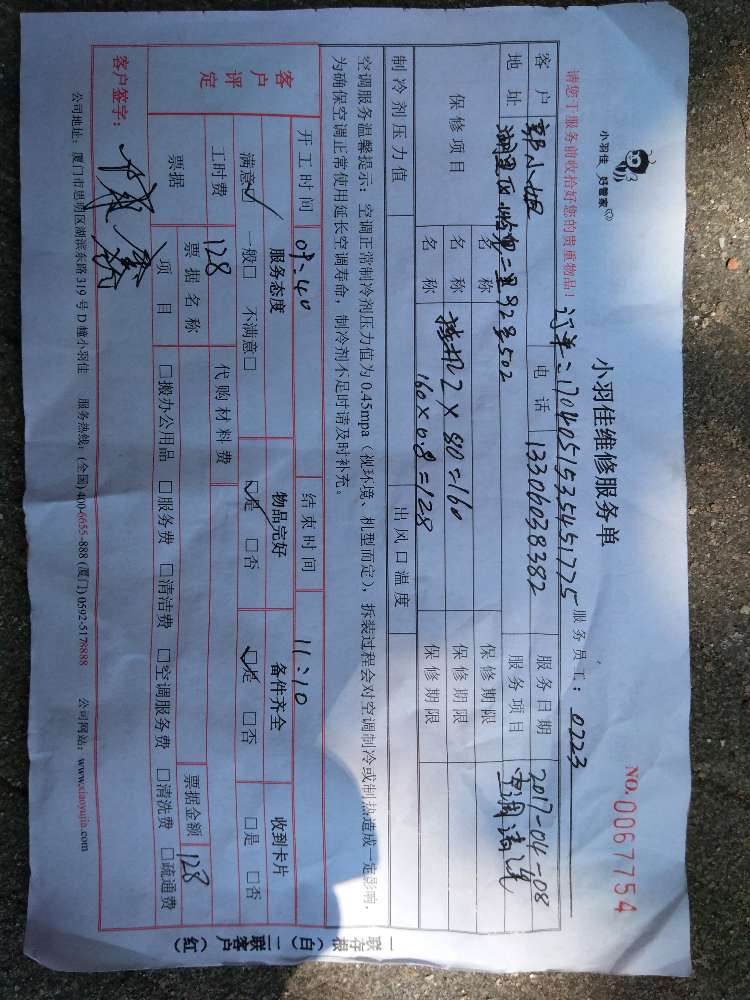 小羽佳 好管家
小羽佳维修服务单
NO.0067754
请您于服务前收拾好您的贵重物品!
订单:17040515354451775 服务员工: 0223
客户 郭小姐 电话 13306038382 服务日期 2017-04-08
地址 湖里区 二里92号502 服务项目 空调清洗
保修项目 名称 保修期限
名称 挂机2×80=160 保修期限
名称 160×0.8=128 保修期限
制冷剂压力值 出风口温度
空调服务温馨提示:空调正常制冷剂压力值为0.45mpa(视环境、机型而定),拆装过程会对空调制冷或制热造成一定影响,
为确保空调正常使用延长空调寿命,制冷剂不足时请及时补充。
开工时间 09:40 结束时间 11:10
客户评定 服务态度 物品完好 备件齐全 收到卡片
满意☑ 一般□ 不满意□ ☑是 □否 ☑是 □否 □是 □否
工时费 128 代购材料费 票据金额 128
票据 票据名称
项目 □搬办公用品 □服务费 □清洁费 □空调服务费 □清洗费 □疏通费
客户签字:
公司地址:厦门市思明区湖滨东路319号D幢小羽佳 服务热线:(全国)400-6655-888 (厦门)0592-5178888 公司网站:www.xiaoyujia.com
一联存根(白)二联客户(红)